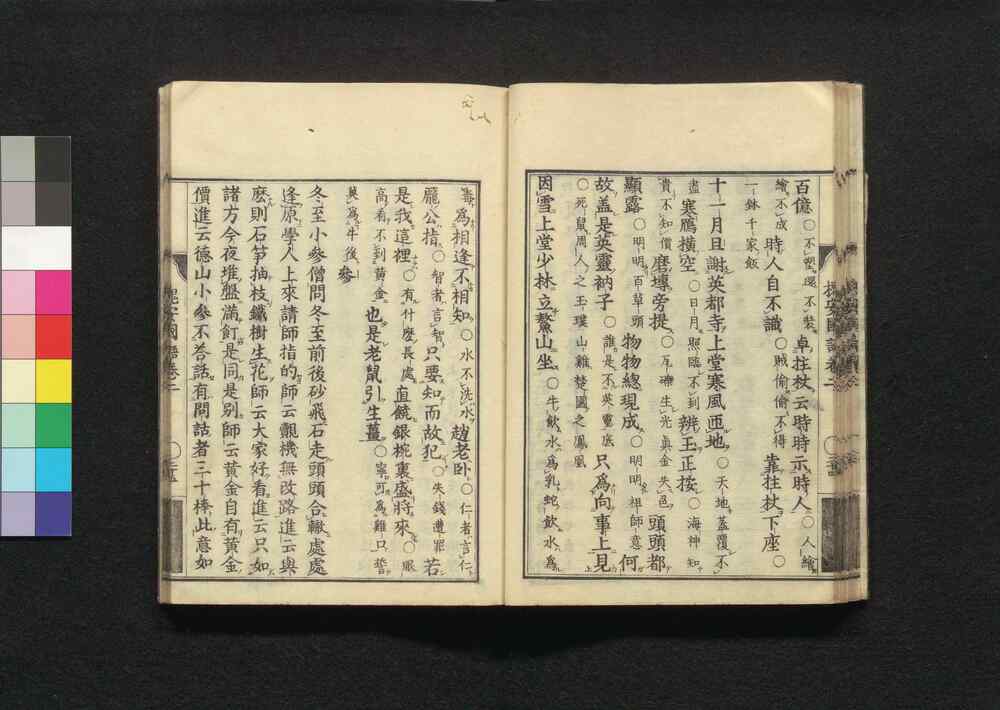 百億○不塑還不裝卓拄杖云時時示時人○人繪
繪不成時人自不識○賊偷偷不得靠拄杖下座○
一鉢千家飯
十一月旦謝英都寺上堂寒風匝地○天地蓋覆不
盡寒鴈橫空○日月照臨不到辨玉正按○海神知
貴不知價磨塼旁提○瓦礫生光眞金失色頭頭都
顯露○明明百草頭物物總現成○明明祖師意何
故盖是英靈衲子○誰是不英靈底只爲向事上見
○死鼠周人之玉璞山雞楚國之鳳凰
因雪上堂少林立鰲山坐○牛飲水爲乳蛇飲水爲
毒爲相逢不相知○水不洗水趙老卧○仁者言仁
龐公指○智者言智只要知而故犯○失錢遭罪若
是我這裡○有什麽長處直饒銀椀裏盛將來○眼
高看不到黃金也是老鼠引生薑○寧可爲雞口誓
莫爲牛後參
冬至小參僧問冬至前後砂飛石走頭頭合轍處處
逢原學人上來請師指的師云覿機無改路進云與
麽則石笋抽枝鐵樹生花師云大家好看進云只如
諸方今夜堆盤滿飣是同是別師云黃金自有黃金
價進云德山小參不荅話有問話者三十棒此意如
槐安國語卷二